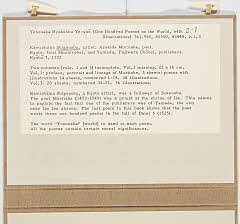 Yononaka Hyakushu Yeiri (One Hundred Poems on the World, with
Illustrations) 761.952, 85450, 40448, v.1,3
Kawashima Shigenobu, artist. Arakida Moritake, poet.
Kyoto; Seni Shokurobei, and Yamada, Fujiwara Chōbei, publishers.
Kyoho 7, 1722
Two volumes (vols. 1 and 3) incomplete. Vol. 2 missing. 22 x 16 cm.
Vol. 1: preface, portrait and lineage of Moritake, 3 sheets; poems with
illustrations 14 sheets, numbered 1-14. 28 illustrations.
Vol. 3: 20 sheets, numbered 32-51. 36 illustrations.
Kawashima Shigenobu, a Kyoto artist, was a follower of Sukenobu.
The poet Moritake (1473-1549) was a priest at the shrine of Ise. This seems
to explain the fact that one of the publishers was of Yamada, the city
near the Ise shrine. The last poem in this book shows that the poet
wrote these one hundred poems in the fall of Daiei 5 (1525).
The word "Yononaka" (world) is used in each poem.
All the poems contain certain moral significances.